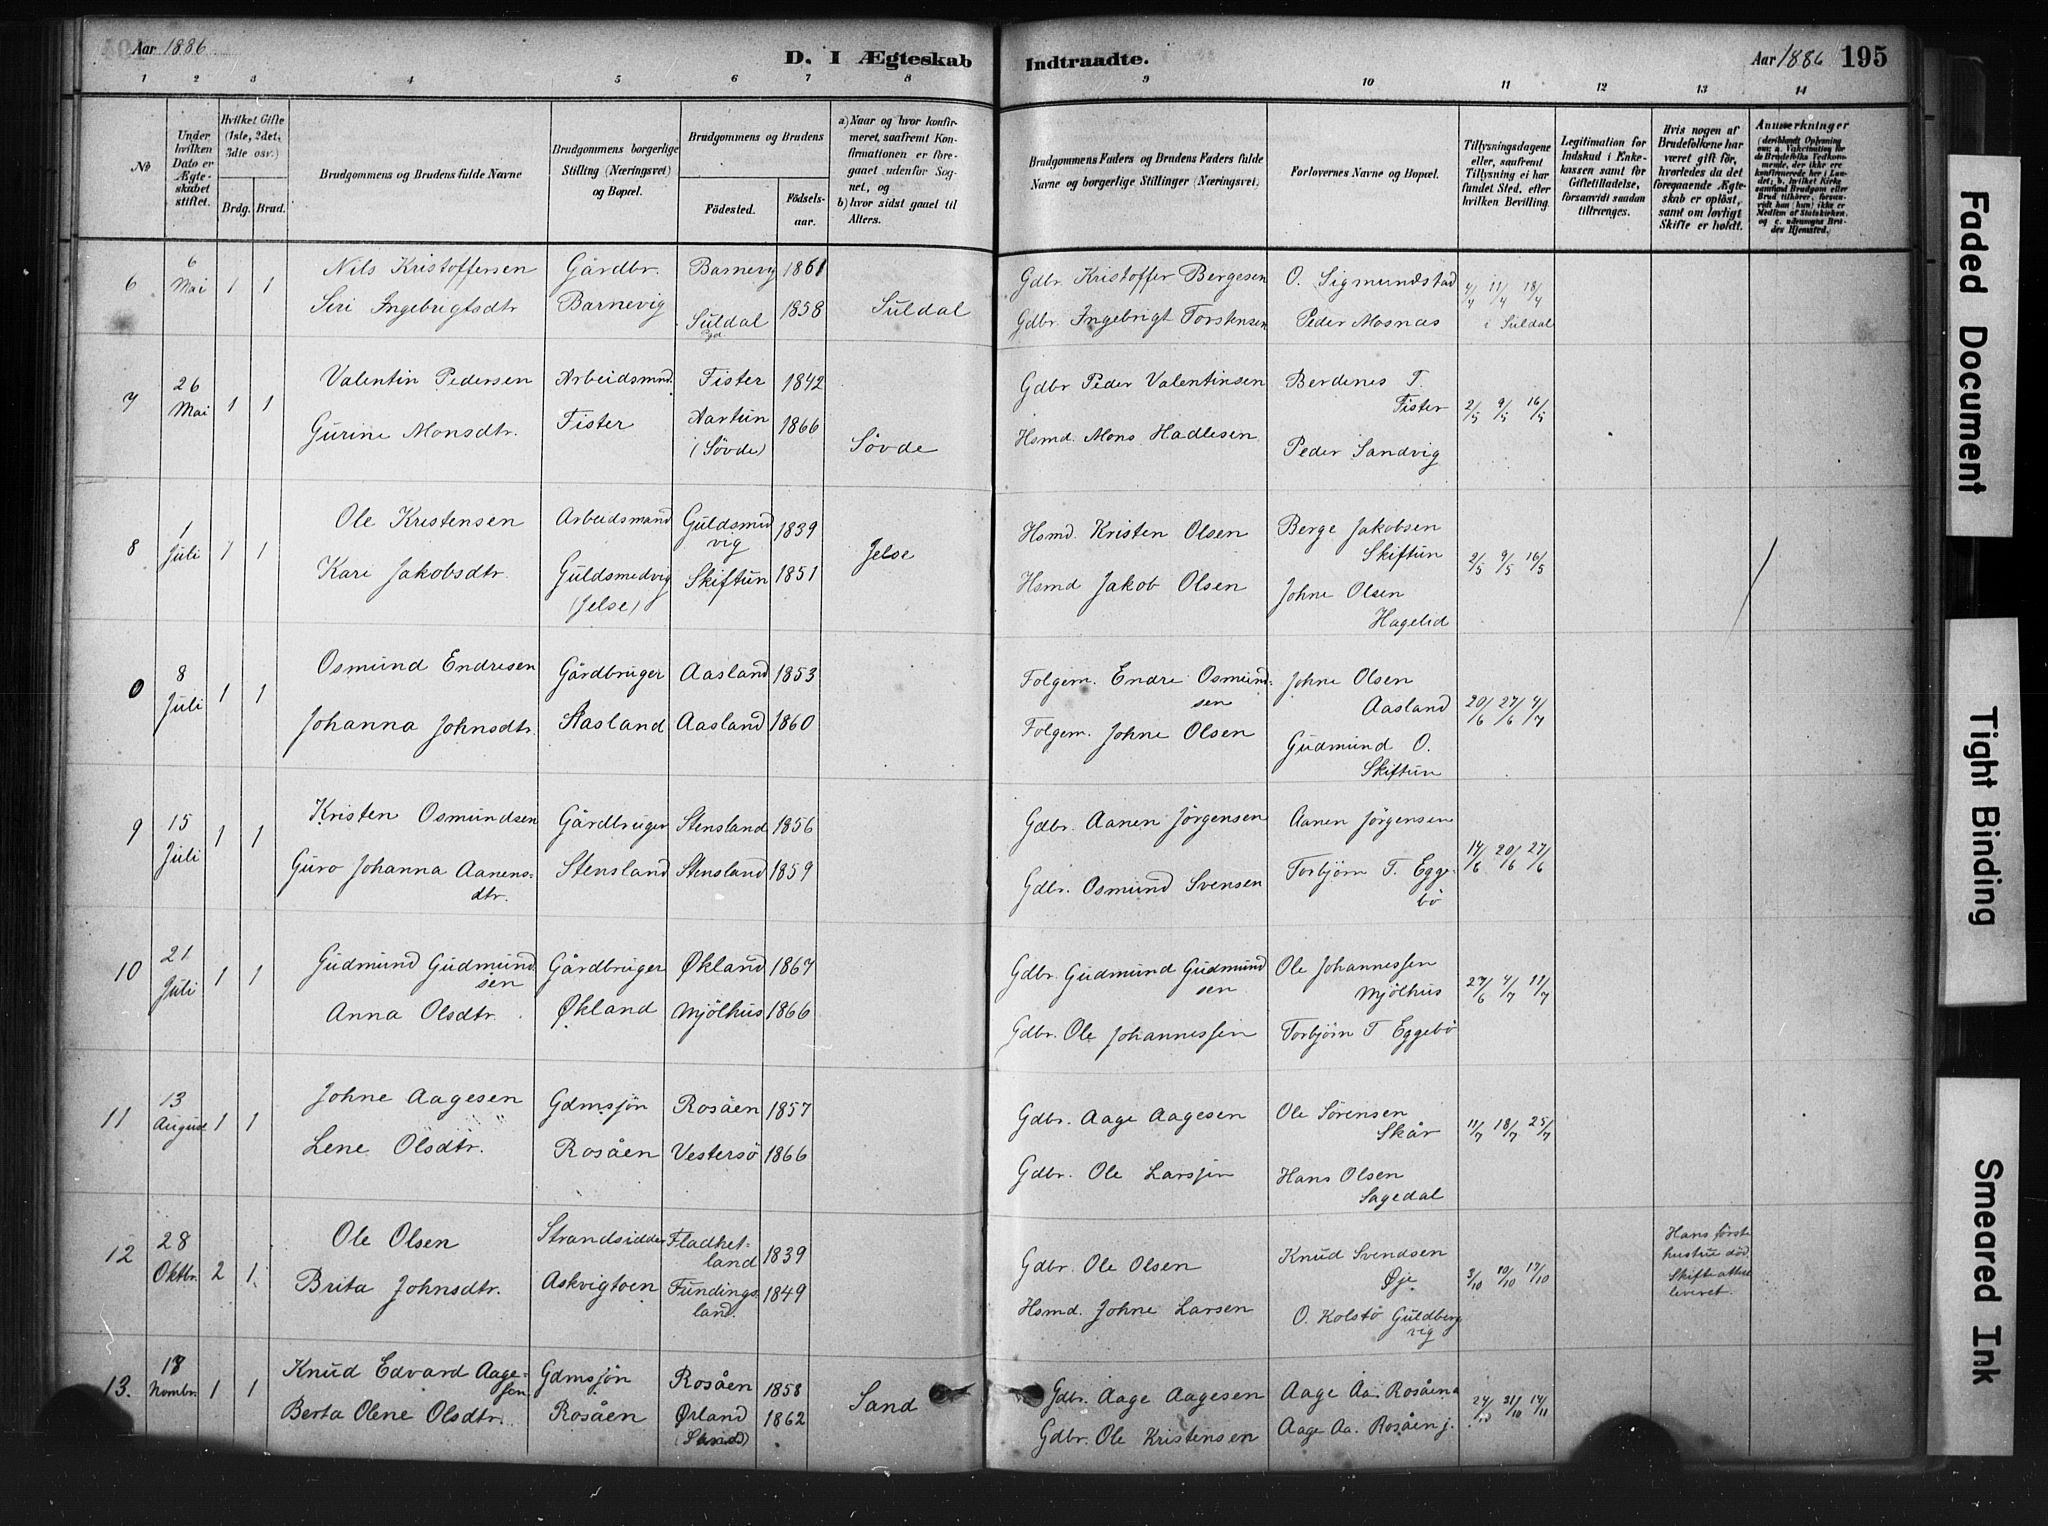 Aar 1886
D. I Ægteskab Indtraadte.
Aar 1886 195
1 2 3 4 5 6 7 8 9 10 11 12 13 14
No
Under hvilken Dato er Ægteskabet stiftet.
Hvilket Gifte (1ste, 2det, 3die osv.)
Brdg. Brud.
Brudgommens og Brudens fulde Navne
Brudgommens borgerlige Stilling (Næringsvei) og Bopæl.
Brudgommens og Brudens
Fødested.
Fødselsaar.
a) Naar og hvor konfirmeret, saafremt Konfirmationen er foregaaet udenfor Sognet, og
b) hvor sidst gaaet til Alters.
Brudgommens Faders og Brudens Faders fulde Navne og borgerlige Stillinger (Næringsvei)
Forlovernes Navne og Bopæl.
Tillysningsdagene eller, saafremt Tillysning ei har fundet Sted, efter hvilken Bevilling.
Legitimation for Indskud i Enkekassen samt for Giftetilladelse, forsaavidt saadan tiltrænges.
Hvis nogen af Brudefolkene har været gift før, hvorledes da det foregaaende Ægteskab er opløst, samt om lovligt Skifte er holdt.
Anmerkninger
6 6 Mai 1 1
Nils Kristoffersen Gårdbr. Barnevig 1861
Gdbr. Kristoffer Bergesen O. Sigmundstad 4/4 11/4 18/4
Siri Ingebrigtsdtr Barnevig Suldal Pgd 1858 Suldal
Gdbr. Ingebrigt Torstensen Peder Mosnæs i Suldal
7 26 Mai 1 1
Valentin Pedersen Arbeidsmnd. Fister 1842
Gdbr Peder Valentinsen Berdines T. Fister 2/5 9/5 16/5
Gurine Monsdtr. Fister Aartun (Søvde) 1866 Søvde
Hsmd. Mons Hadlesen Peder Sandvig
8 1 Juli 1 1
Ole Kristensen Arbeidsmand Guldsmedvig 1839
Hsmd. Kristen Olsen Berge Jakobsen Skiftun 2/5 9/5 16/5
Kari Jakobsdtr. Guldsmedvig (Jelse) Skiftun 1851 Jelse
Hsmd Jakob Olsen Johne Olsen Hagelid
0 8 Juli 1 1
Osmund Endresen Gårdbruger Aasland 1853
Folgem. Endre Osmundsen Johne Olsen Aasland 20/6 27/6 4/7
Johanna Johnsdtr. Aasland Aasland 1860
Folgem. Johne Olsen Gudmund O. Skiftun
9 15 Juli 1 1
Kristen Osmundsen Gårdbruger Stensland 1856
Gdbr. Aanen Jørgensen Aanen Jørgensen 14/6 20/6 27/6
Guro Johanna Aanensdtr. Stensland Stensland 1859
Gdbr. Osmund Svensen Torbjørn T. Eggebö
10 21 Juli 1 1
Gudmund Gudmundsen Gårdbruger Økland 1867
Gdbr. Gudmund Gudmundsen Ole Johannessen Mjölhus 27/6 4/7 11/7
Anna Olsdtr. Økland Mjölhus 1866
Gdbr. Ole Johannessen Torbjørn T Eggebö
11 13 August 1 1
Johne Aagesen Gdmsjön Rosåen 1857
Gdbr. Aage Aagesen Ole Sørensen Skår 11/7 18/7 25/7
Lene Olsdtr. Rosåen Vestersö 1866
Gdbr. Ole Larssen Hans Olsen Sagedal
12 28 Oktbr. 2 1
Ole Olsen Strandsidder Fladhetland 1839
Gdbr. Ole Olsen Knud Svendsen Øje 3/10 10/10 17/10
Hans første hustru död. Skifteattest leveret.
Brita Johnsdtr. Askvigtoen Fundingsland 1849
Hsmd. Johne Larsen O. Kolstö Guldbergvig
13. 18 Novmbr. 1 1
Knud Edvard Aagesen Gdmsjön Rosåen 1858
Gdbr. Aage Aagesen Aage Aa. Rosåen 24/10 31/10 14/11
Berta Olene Olsdtr. Rosåen Ørland (Sand) 1862 Sand
Gdbr. Ole Kristensen Aage Aa. Rosåen j.
Faded Document
Tight Binding
Smeared Ink